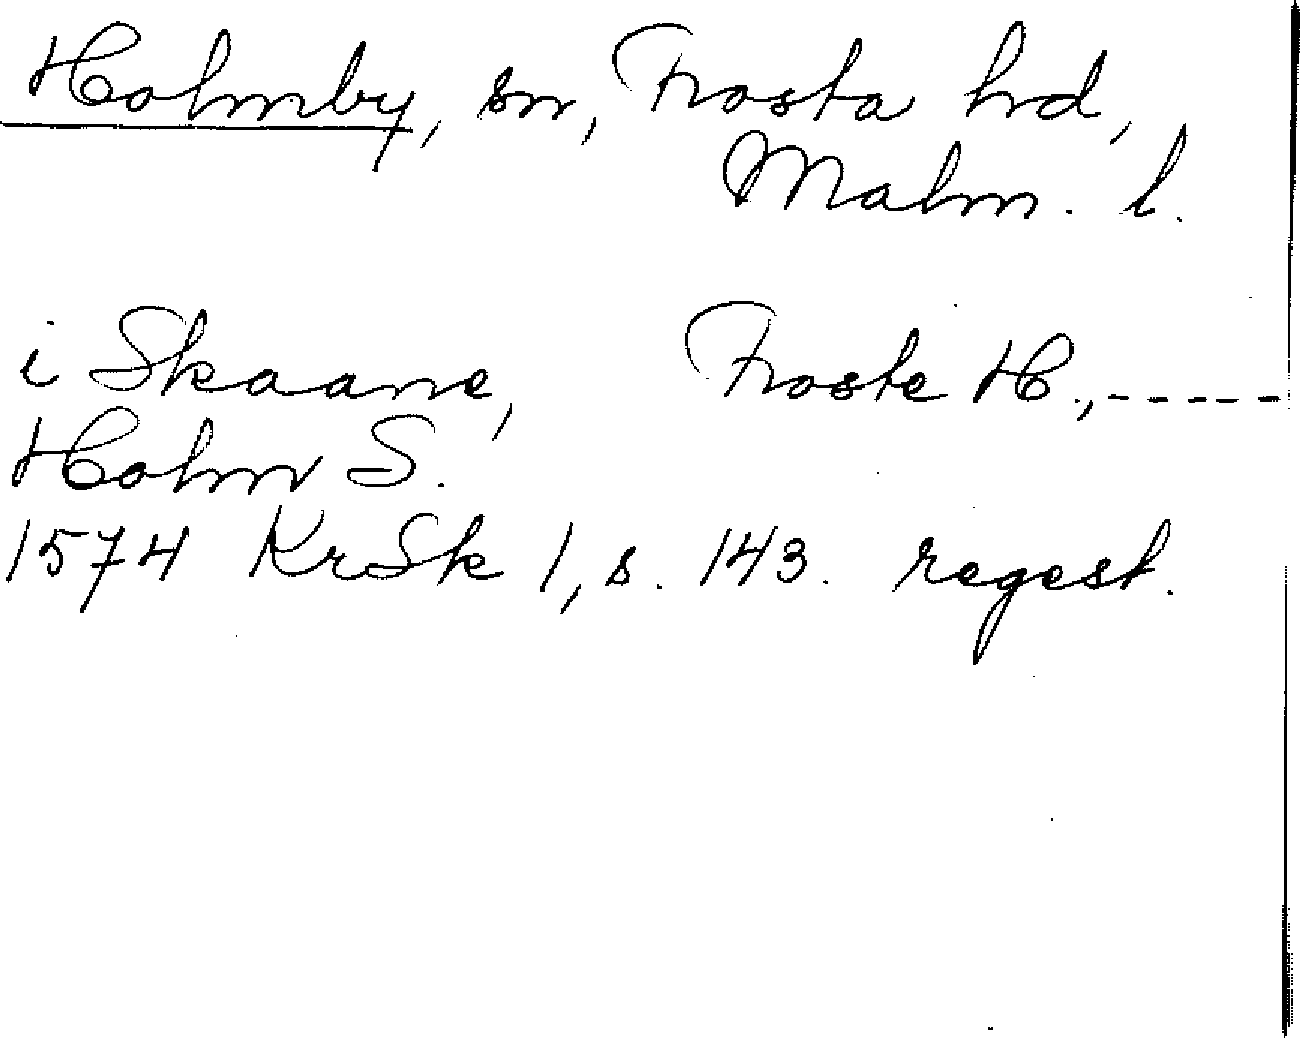 Holmby, sn, Frosta hrd,
Malm. l.
i Skaane, Froste H., -----
Holm S.
1574 KrSk 1, s. 143. regest.